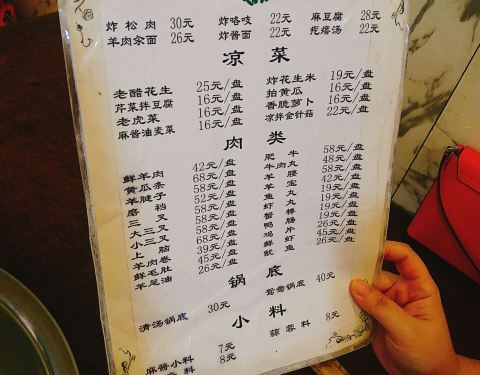 炸松肉 30元 炸咯吱 22元 麻豆腐 28元
羊肉汆面 26元 炸酱面 22元 疙瘩汤 22元
凉菜
老醋花生 25元/盘 炸花生米 19元/盘
芹菜拌豆腐 16元/盘 拍黄瓜 16元/盘
老虎菜 16元/盘 香脆萝卜 16元/盘
麻酱油麦菜 16元/盘 凉拌金针菇 22元/盘
肉类
鲜羊肉 42元/盘 肥牛 58元/盘
黄瓜条 68元/盘 牛肉丸 48元/盘
羊腱子 58元/盘 羊腰 58元/盘
磨裆 52元/盘 羊宝 42元/盘
三叉 58元/盘 鱼丸 19元/盘
大三叉 58元/盘 虾丸 19元/盘
小三叉 68元/盘 蟹棵 19元/盘
上脑 39元/盘 鸭肠 26元/盘
羊肉卷 45元/盘 鸡片 26元/盘
鲜毛肚 26元/盘 鲜虾 45元/盘
羊尾油 鱿鱼 26元/盘
锅底
清汤锅底 30元 鸳鸯锅底 40元
小料
麻酱小料 7元 蒜蓉料 8元
料 8元